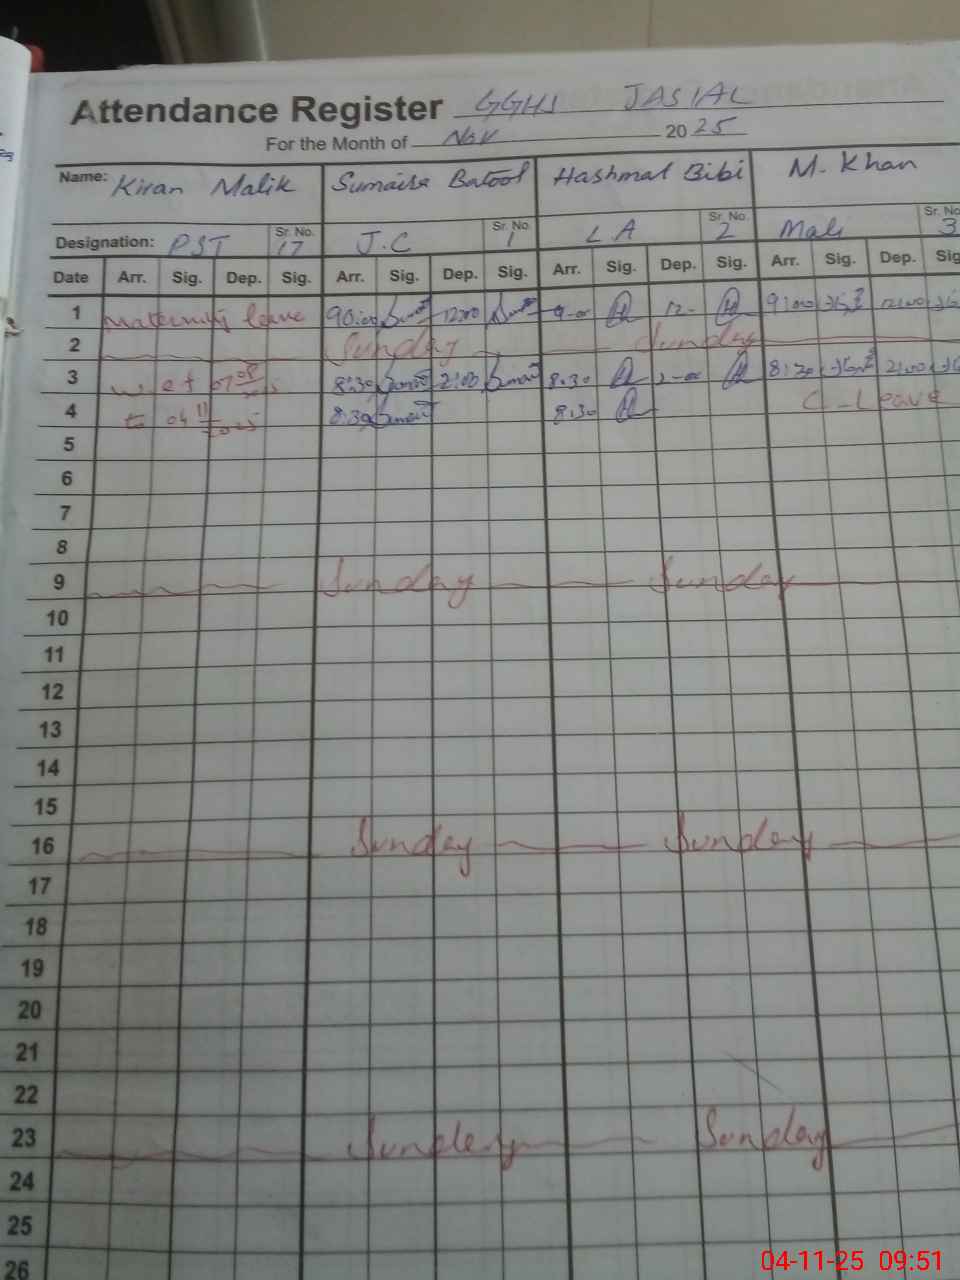 Attendance Register GGHS JASIAL
For the Month of Nov 2025
Name: Kiran Malik Sumaira Batool Hashmat Bibi M. Khan
Designation: PST Sr. No. 17 J.C Sr. No. 1 L A Sr. No. 2 Mali Sr. No. 3
Date Arr. Sig. Dep. Sig. Arr. Sig. Dep. Sig. Arr. Sig. Dep. Sig. Arr. Sig. Dep. Sig
1 Maternity leave 12:00 9-00 12- 9:00 12:00
2 Sunday Sunday
3 w e f 8:30 2:00 8.30 2-00 8:30 2:00
4 to 04 11 2025 8:30 8:30 C-Leave
5
6
7
8
9 Sunday Sunday
10
11
12
13
14
15
16 Sunday Sunday
17
18
19
20
21
22
23 Sunday Sunday
24
25
26
04-11-25 09:51